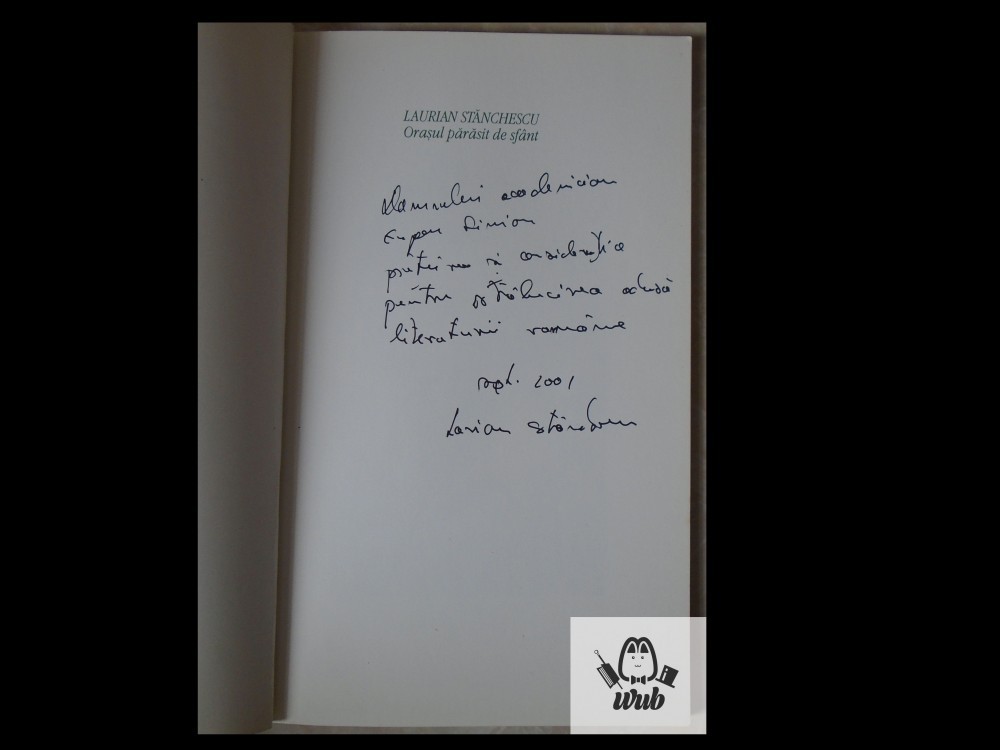 LAURIAN STĂNCHESCU
Orașul părăsit de sfânt
Domnului academician
Eugen Simion
prețuirea și considerația
pentru strălucirea adusă
literaturii române
sept. 2001
Laurian Stănchescu
wub